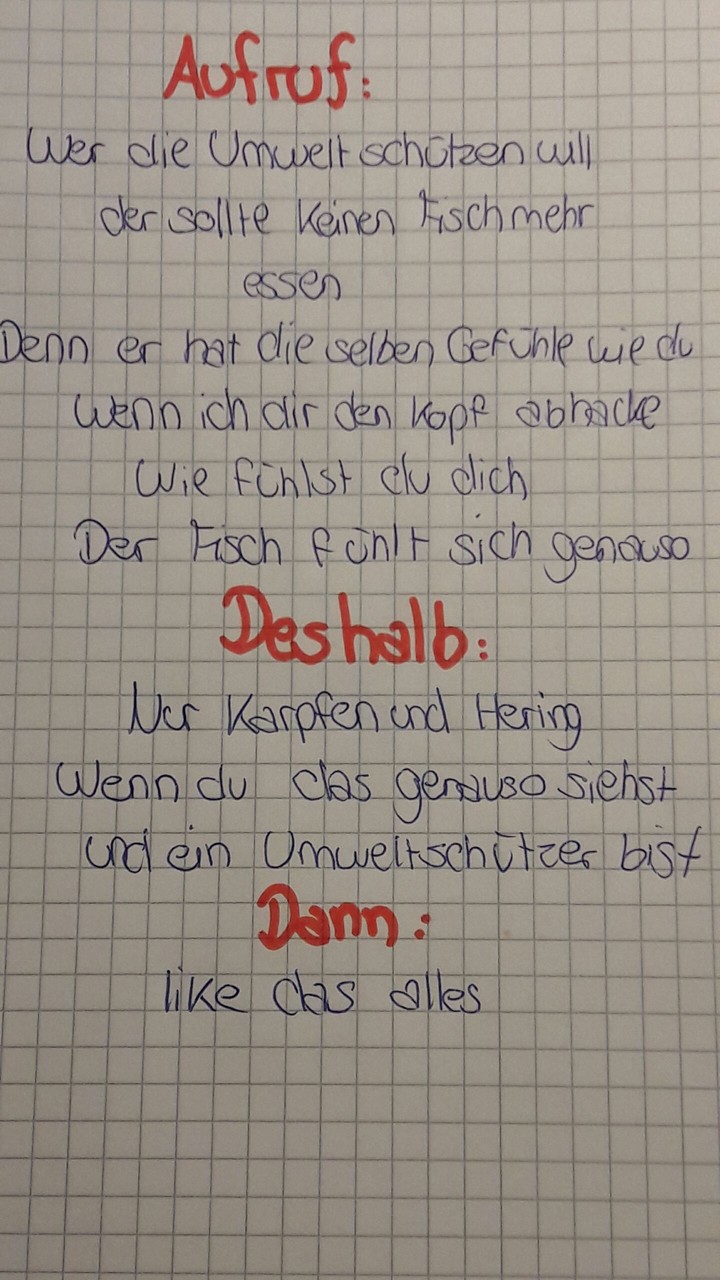 Aufruf:
Wer die Umwelt schützen will
der sollte keinen Fisch mehr
essen
Denn er hat die selben Gefühle wie du
Wenn ich dir den Kopf abhacke
Wie fühlst du dich
Der Fisch fühlt sich genauso
Deshalb:
Nur Karpfen und Hering
Wenn du das genauso siehst
und ein Umweltschützer bist
Dann:
like das alles